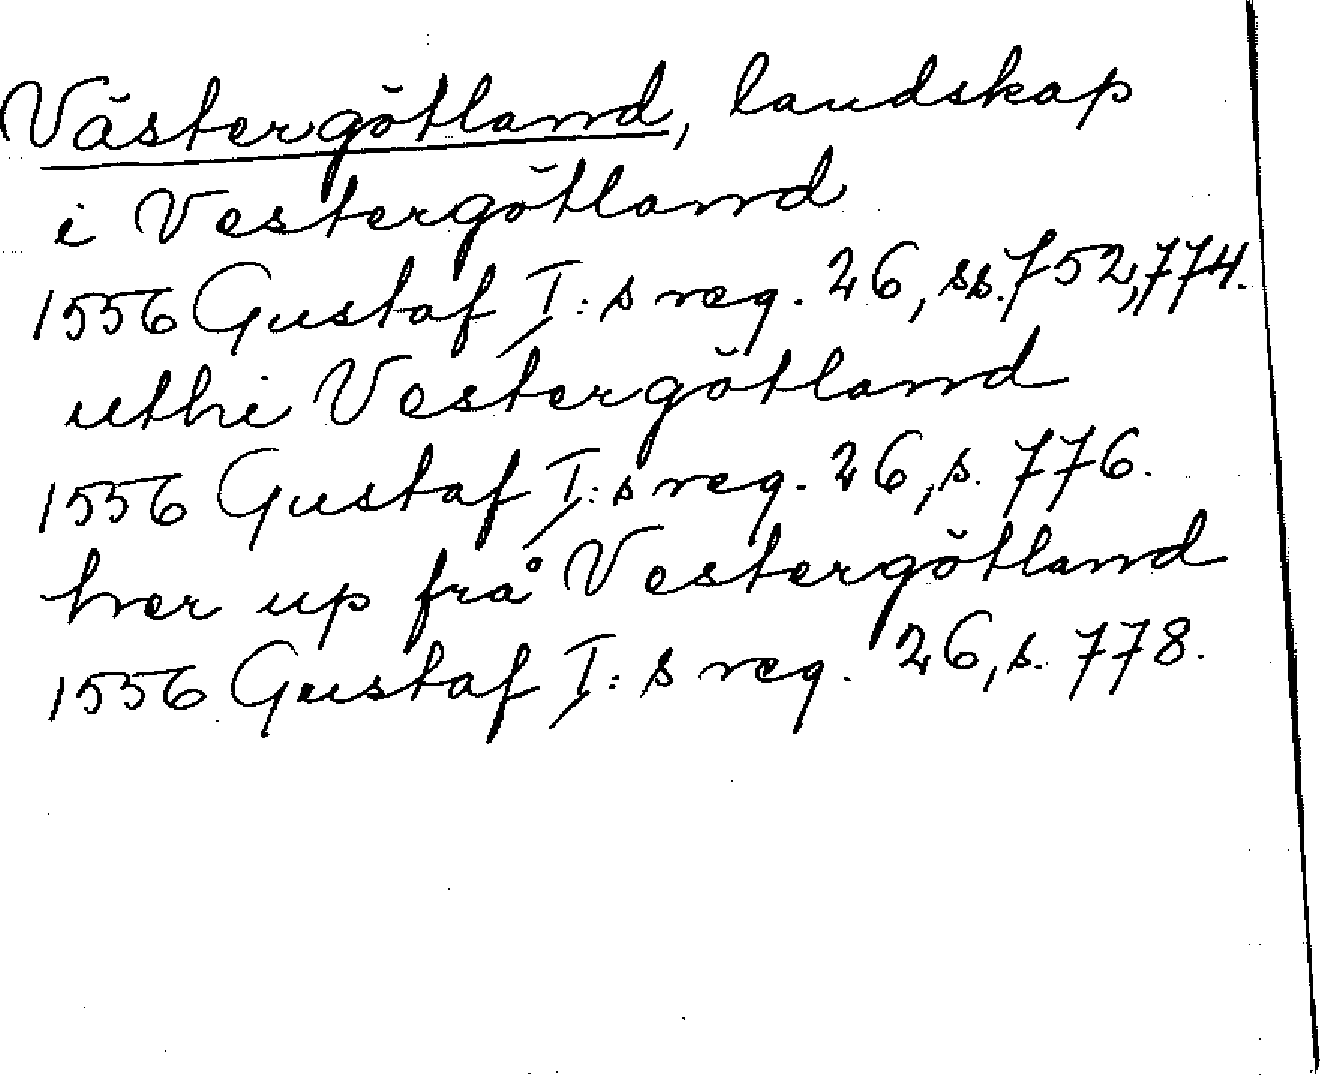 Västergötland, landskap
i Vestergötland
1556 Gustaf I:s reg. 26, ss. 752, 774.
uthi Vestergötland
1556 Gustaf I:s reg. 26, s. 776.
her up frå Vestergötland
1556 Gustaf I:s reg. 26, s. 778.